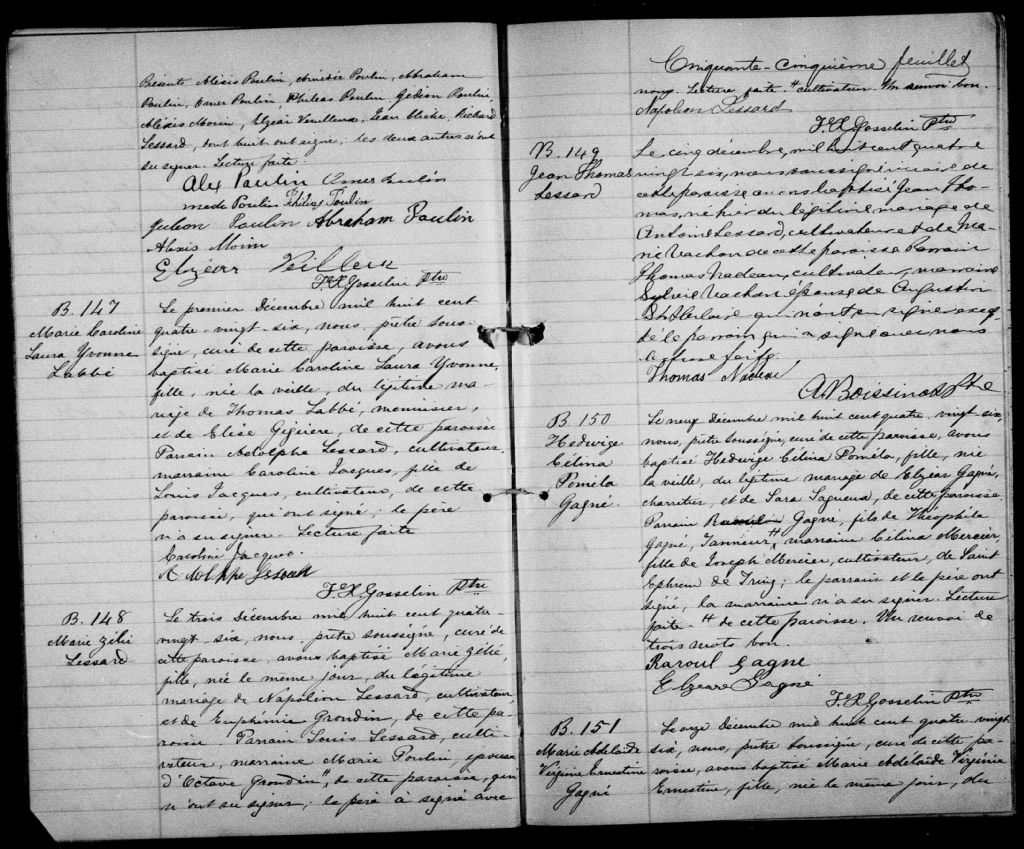 Présents Alexis Poulin, Amédée Poulin, Abraham
Poulin, Omer Poulin, Philéas Poulin, Gédéon Poulin,
Alexis Morin, Elzéar Veilleux, Jean Richard
Lessard, dont huit ont signé; les deux autres n'ont
su signer. Lecture faite.
Alex Poulin Omer Poulin
Philéas Poulin
Poulin Abraham Poulin
Alexis Morin
Elzéar Veilleux
F.X. Gosselin Ptre
B. 147
Marie Caroline
Laura Yvonne
Labbé
Le premier Décembre mil huit cent
quatre-vingt-six, nous, prêtre sous-
signé, curé de cette paroisse, avons
baptisé Marie Caroline Laura Yvonne,
fille, née la veille, du légitime ma-
riage de Thomas Labbé, menuisier,
et de Elise Giguère, de cette paroisse
Parrain Adolphe Lessard, cultivateur,
marraine Caroline Jacques, fille de
Louis Jacques, cultivateur, de cette
paroisse, qui ont signé; le père
n'a su signer. Lecture faite
Caroline Jacques
Adolphe Lessard
F.X. Gosselin Ptre
B. 148
Marie Zélie
Lessard
Le trois Décembre mil huit cent quatre-
vingt-six, nous, prêtre soussigné, curé de
cette paroisse, avons baptisé Marie Zélie,
fille, née le même jour, du légitime
mariage de Napoléon Lessard, cultivateur
et de Euphémie Grondin, de cette pa-
roisse. Parrain Louis Lessard, culti-
vateur, marraine Marie Poulin, épouse
d'Octave Grondin, # de cette paroisse, qui
n'ont su signer; le père à signé avec
Cinquante-cinquième feuillet
nous. Lecture faite # cultivateur. Un renvoi bon.
Napoléon Lessard
F.X. Gosselin Ptre
B. 149
Jean Thomas
Lessard
Le cinq décembre, mil huit cent quatre
vingt six, nous soussigné vicaire de
cette paroisse avons baptisé Jean Tho-
mas, né hier du légitime mariage de
Antoine Lessard, cultivateur et de Ma-
rie Vachon de cette paroisse Parrain
Thomas Nadeau, cultivateur, marraine
Sylvie Vachon épouse de Augustin
St Hilaire qui n'ont su signer excep-
té le parrain qui a signé avec nous
lecture faite.
Thomas Nadeau
A. Boissinot Ptre
B. 150
Hedwige
Célina
Poméla
Gagné.
Le neuf Décembre mil huit cent quatre-vingt-six,
nous, prêtre soussigné, curé de cette paroisse, avons
baptisé Hedwige Célina Poméla, fille, née
la veille, du légitime mariage de Elzéar Gagné,
charretier, et de Sara Lagueux, de cette paroisse,
Parrain Raoul Gagné, fils de Théophile
Gagné, Tanneur #, marraine Célina Mercier,
fille de Joseph Mercier, cultivateur, de Saint
Ephrem de Tring; le parrain et le père ont
signé, la marraine n'a su signer. Lecture
faite # de cette paroisse. Un renvoi de
trois mots bon.
Raroul Gagne
Elzear Gagné
F.X. Gosselin Ptre
B. 151
Marie Adelaide
Virginie Ernestine
Gagné
Le onze Décembre mil huit cent quatre-vingt
six, nous, prêtre soussigné, curé de cette pa-
roisse, avons baptisé Marie Adelaïde Virginie
Ernestine, fille, née le même jour, du